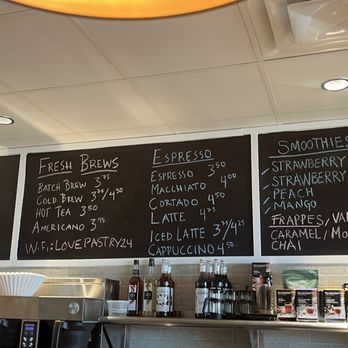 FRESH BREWS
BATCH BREW 3.75
COLD BREW 3.75/4.50
HOT TEA 3.50
AMERICANO 3.95
WiFi: LOVEPASTRY24
ESPRESSO
ESPRESSO 3.50
MACCHIATO 4.00
CORTADO 4.50
LATTE 4.75
ICED LATTE 3.75/4.25
CAPPUCCINO 4.50
SMOOTHIES
STRAWBERRY
STRAWBERRY
PEACH
MANGO
FRAPPES/VA
CARAMEL/MO
CHAI